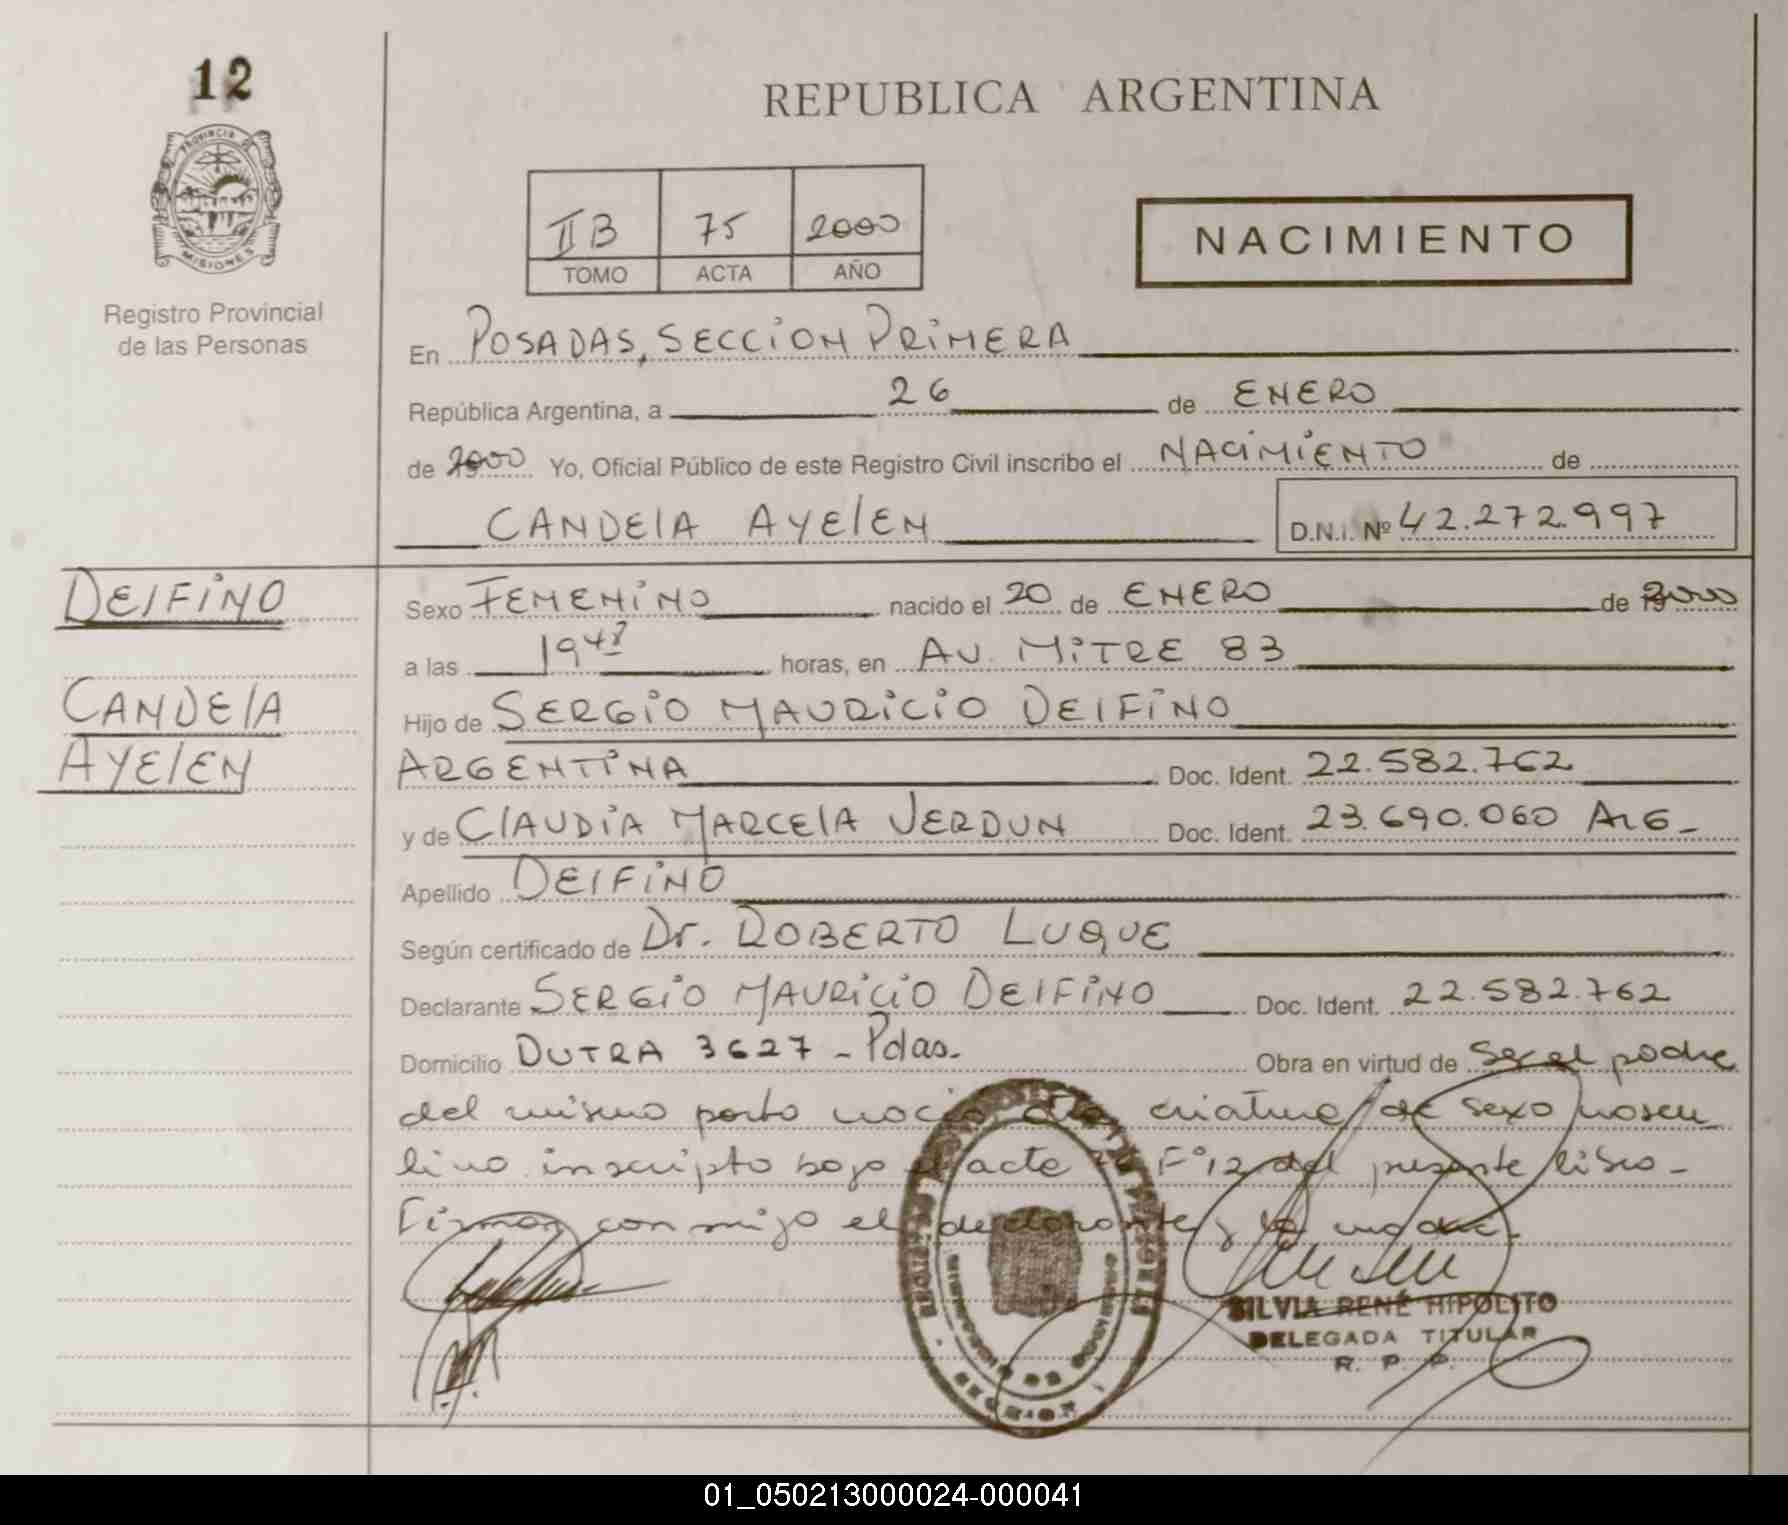 12
PROVINCIA DE
MISIONES
Registro Provincial
de las Personas
REPUBLICA ARGENTINA
II B 75 2000
TOMO ACTA AÑO
NACIMIENTO
En POSADAS, SECCION PRIMERA
República Argentina, a 26 de ENERO
de 2000 Yo, Oficial Público de este Registro Civil inscribo el NACIMIENTO de
CANDELA AYELEN D.N.I. Nº 42.272.997
DELFINO
CANDELA
AYELEN
Sexo FEMENINO nacido el 20 de ENERO de 2000
a las 19 horas, en AV. MITRE 83
Hijo de SERGIO MAURICIO DELFINO
ARGENTINA Doc. Ident. 22.582.762
y de CLAUDIA MARCELA VERDUN Doc. Ident. 23.690.060 ARG-
Apellido DELFINO
Según certificado de Dr. ROBERTO LUQUE
Declarante SERGIO MAURICIO DELFINO Doc. Ident. 22.582.762
Domicilio DUTRA 3627 - Pdas. Obra en virtud de ser el padre
del mismo parto nació otra criatura de sexo mascu
lino inscripto bajo el acta Fº 12 del presente libro-
Firman conmigo el declarante y la madre.
SILVIA RENÉ HIPOLITO
DELEGADA TITULAR
R. P. P.
01_050213000024-000041